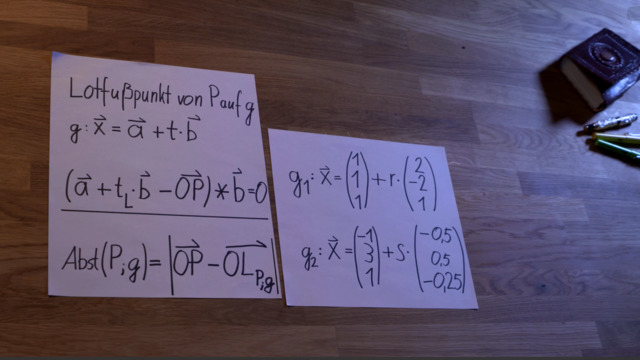 Lotfußpunkt von P auf g
g: x⃗ = a⃗ + t·b⃗
(a⃗ + t_L·b⃗ − OP⃗) * b⃗ = 0
Abst(P;g) = |OP⃗ − OL⃗_P;g|
g₁: x⃗ = (1 1 1) + r·(2 −2 1)
g₂: x⃗ = (−1 3 1) + s·(−0,5 0,5 −0,25)